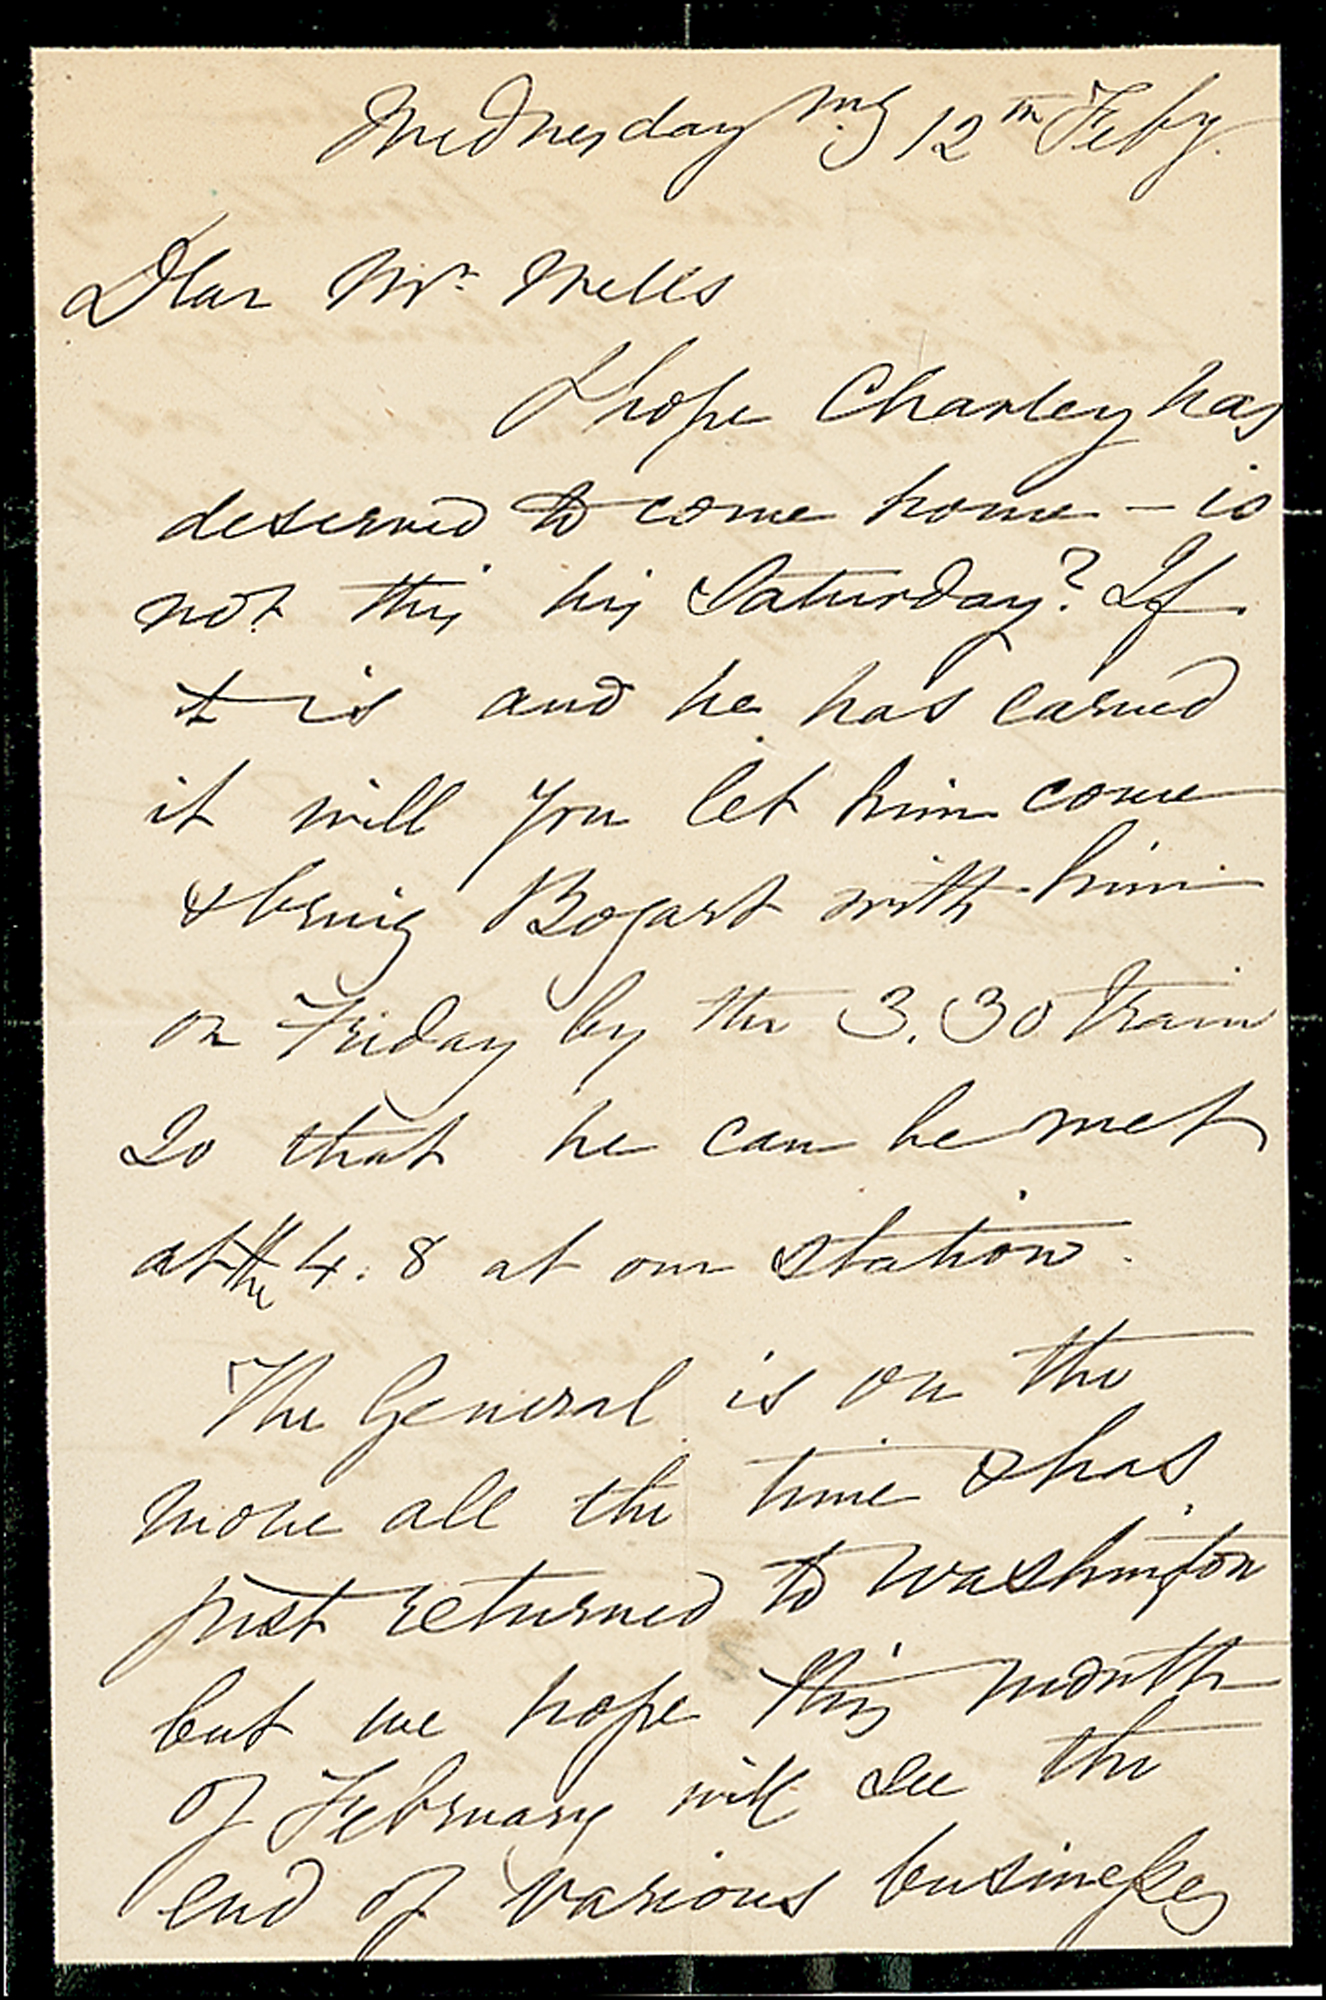 Wednesday mg 12th Feby.
Dear Mr. Wells
I hope Charley has
deserved to come home - is
not this his Saturday? If
it is and he has earned
it will you let him come
& bring Bogart with him
on Friday by the 3.30 train
So that he can be met
at the 4.8 at our station.
The General is on the
move all the time & has
just returned to Washington
but we hope this month
of February will see the
end of various businesses